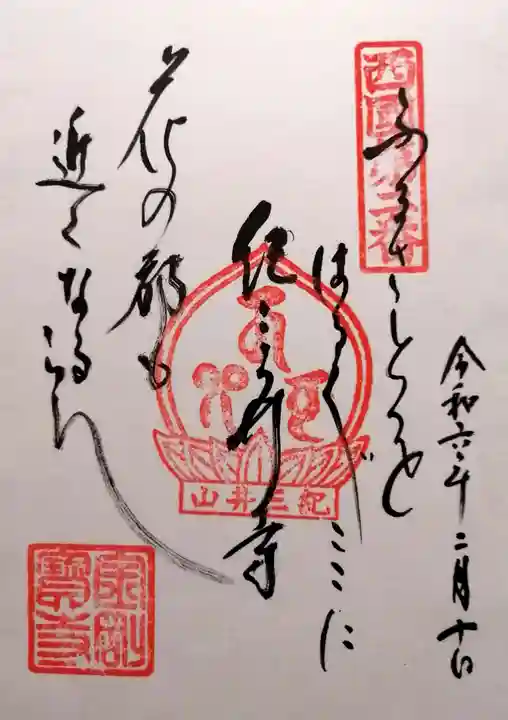 西國第二番
ふるさとを
はるばるここに
紀三井寺
花の都も
近くなるらん
令和六年二月十日
紀三井山
金剛寳寺